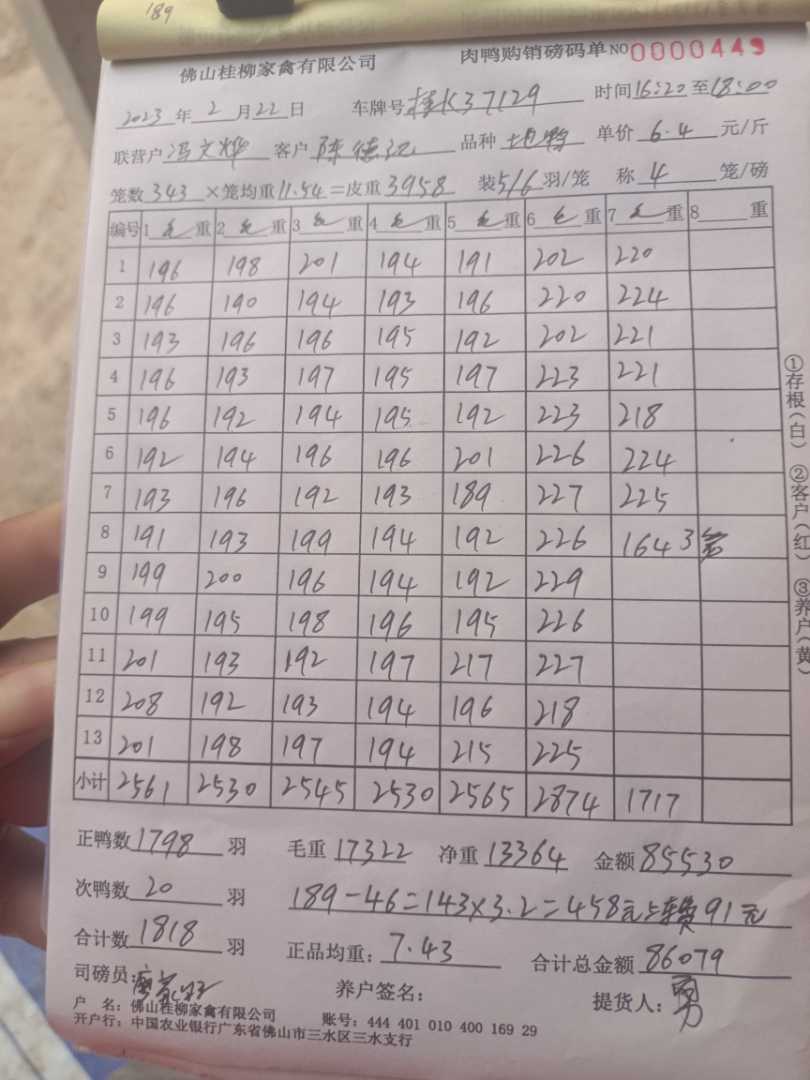 189
佛山桂柳家禽有限公司 肉鸭购销磅码单 NO 0000449
2023年2月22日 车牌号桂K37129 时间16:20至18:00
联营户 冯文烨 客户 陈德 品种 单价 6.4 元/斤
笼数 343 ×笼均重 11.54 =皮重 3958 装 5/6 羽/笼 称 4 笼/磅
编号 1 毛 重 2 毛 重 3 毛 重 4 毛 重 5 毛 重 6 毛 重 7 毛 重 8 重
1 196 198 201 194 191 202 220
2 196 190 194 193 196 220 224
3 193 196 196 195 192 202 221
4 196 193 197 195 197 223 221
5 196 192 194 195 192 223 218
6 192 194 196 196 201 226 224
7 193 196 192 193 189 227 225
8 191 193 199 194 192 226 164 3笼
9 199 200 196 194 192 229
10 199 195 198 196 195 226
11 201 193 192 197 217 227
12 208 192 193 194 196 218
13 201 198 197 194 215 225
小计 2561 2530 2545 2530 2565 2874 1717
正鸭数 1798 羽 毛重 17322 净重 13364 金额 85530
次鸭数 20 羽 189-46=143×3.2=458元 91元
合计数 1818 羽 正品均重: 7.43 合计总金额 86079
司磅员: 养户签名: 提货人: 勇
户 名: 佛山桂柳家禽有限公司 账号: 444 401 010 400 169 29
开户行: 中国农业银行广东省佛山市三水区三水支行
①存根(白) ②客户(红) ③养户(黄)